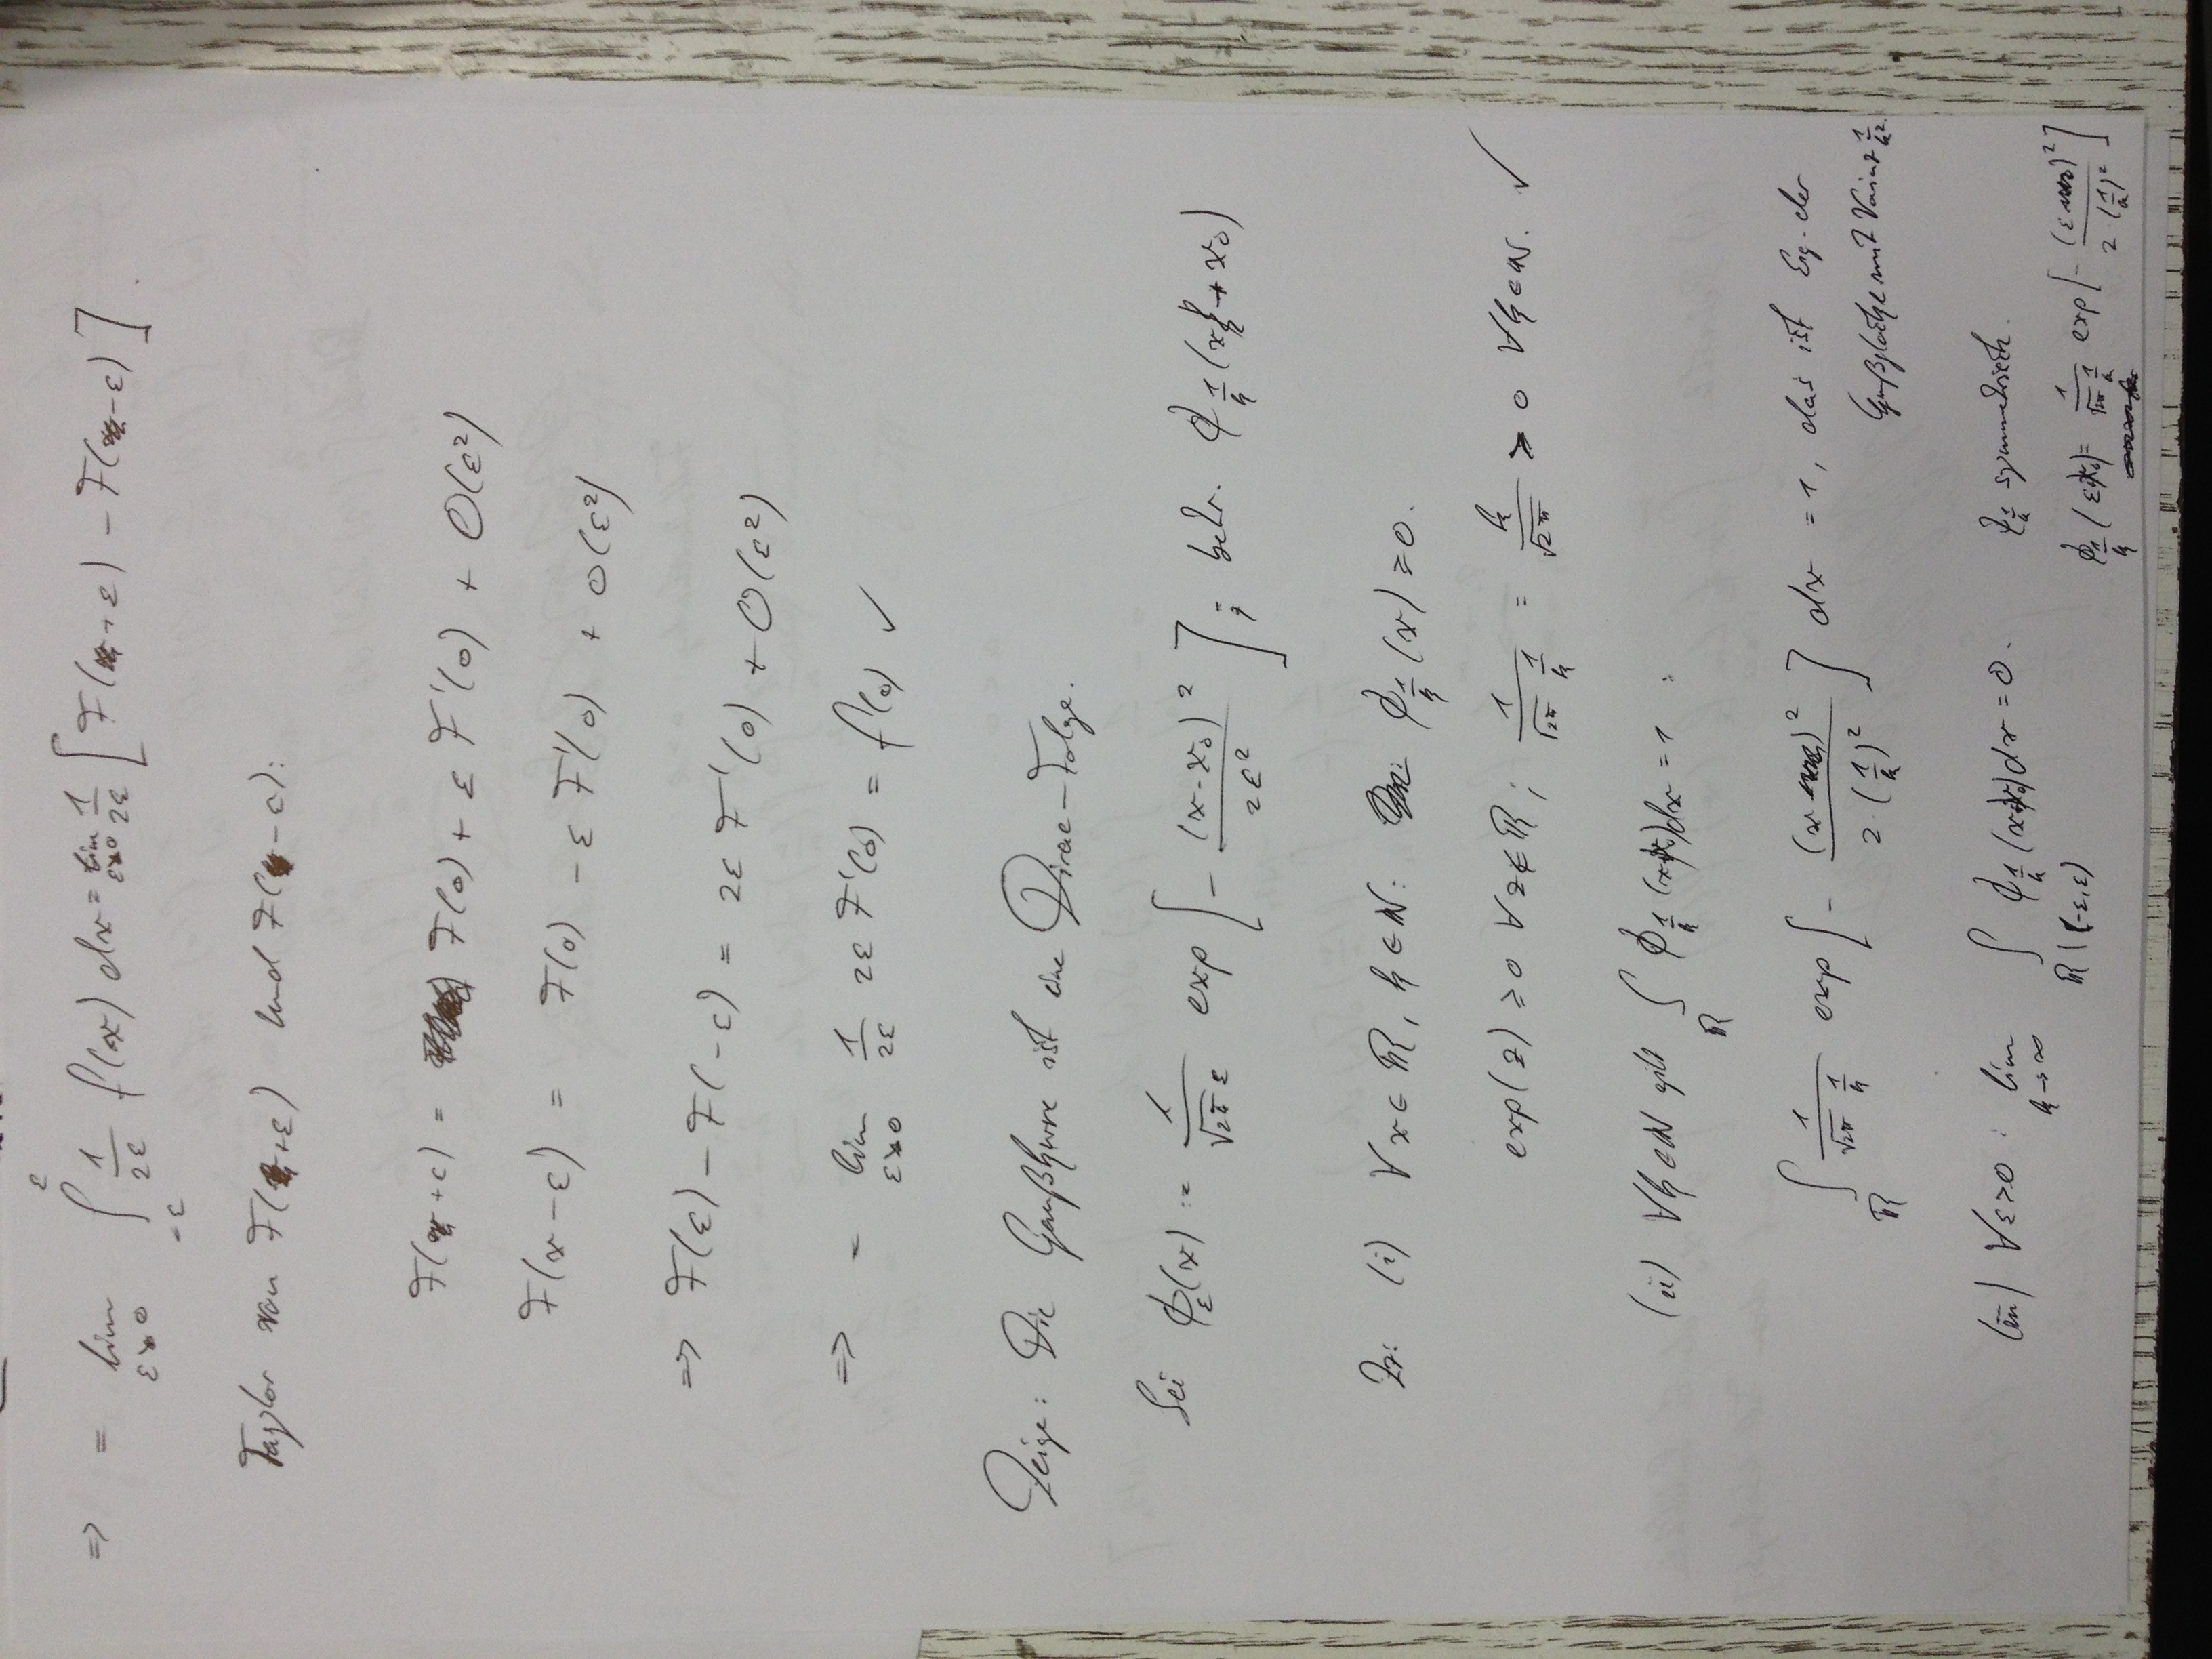 ⇒ = lim_{ε↘0} ∫_{-ε}^{ε} 1/(2ε) f(x) dx = lim_{ε↘0} 1/(2ε) [F(+ε) - F(-ε)].
Taylor von F(+ε) und F(-ε):
F(+ε) = F(0) + ε F'(0) + O(ε²)
F(x-ε) = F(0) - ε F'(0) + O(ε²)
⇒ F(ε) - F(-ε) = 2ε F'(0) + O(ε²)
⇒ = lim_{ε↘0} 1/(2ε) 2ε F'(0) = f(0) ✓
Zeige: Die Gaußkurve ist eine Dirac-Folge.
Sei ϕ_ε(x) := 1/(√(2π) ε) exp[-(x-x₀)²/(2ε²)]; betr. ϕ_{1/k}(x + x₀)
Zz: (i) ∀x∈ℝ, k∈ℕ: ϕ_{1/k}(x) ≥ 0.
exp(z) ≥ 0 ∀z∈ℝ; 1/(√(2π) 1/k) = k/√(2π) ≥ 0 ∀k∈ℕ. ✓
(ii) ∀k∈ℕ gilt ∫_ℝ ϕ_{1/k}(x) dx = 1 :
∫_ℝ 1/(√(2π) 1/k) exp[-(x)²/(2·(1/k)²)] dx = 1, das ist Erg. der
Gußglocke mit Varianz 1/k².
(iii) ∀ε>0: lim_{k→∞} ∫_{ℝ\(-ε,ε)} ϕ_{1/k}(x) dx = 0. ϕ_{1/k} symmetrisch.
ϕ_{1/k}(ε) = 1/(√(2π) 1/k) exp[-(ε)²/(2·(1/k)²)]